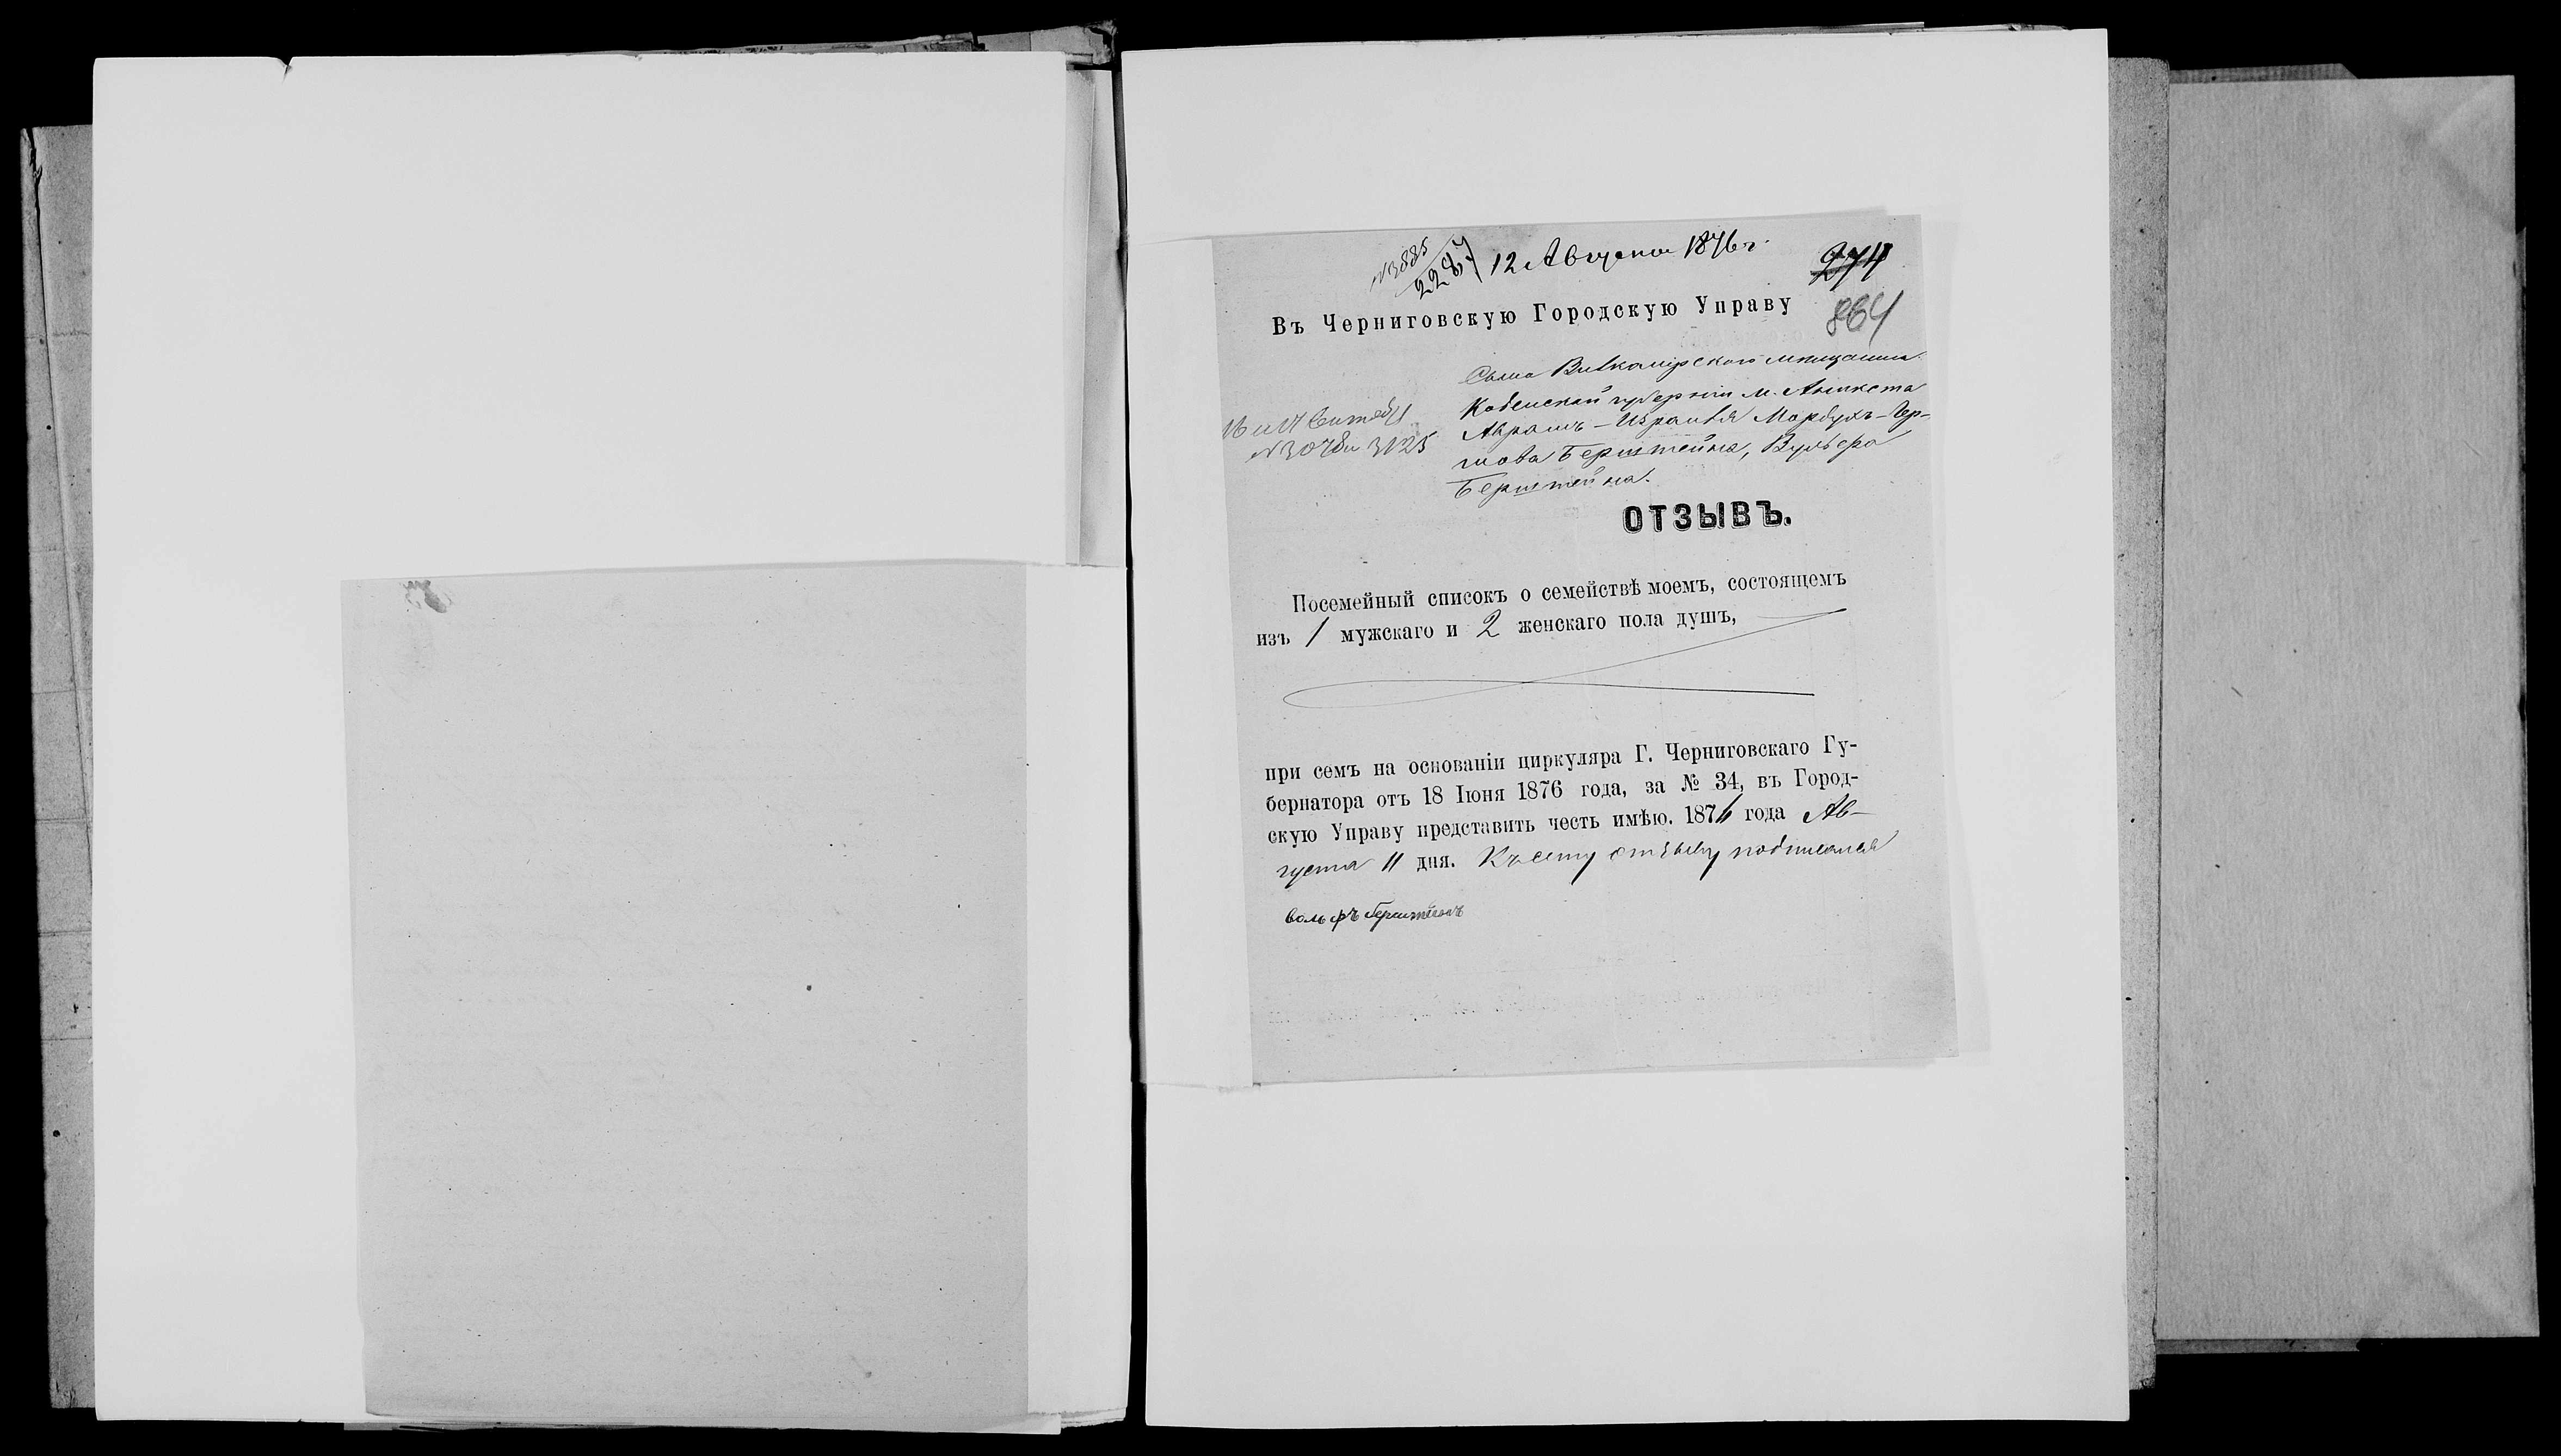 №3885
2287 12 Августа 1876 г.
274
864
Въ Черниговскую Городскую Управу
Сына Вилкомірскаго мѣщанина
Ковенской губерніи м. Аникста
Абрамъ-Израиля Мордухъ-Гер-
шова Берштейна, Вульфа
Берштейна.
16 и 17 Сентяб.
№ 3078 и 3125
ОТЗЫВЪ.
Посемейный списокъ о семействѣ моемъ, состоящемъ
изъ 1 мужскаго и 2 женскаго пола душъ,
при семъ на основаніи циркуляра Г. Черниговскаго Гу-
бернатора отъ 18 Іюня 1876 года, за № 34, въ Город-
скую Управу представить честь имѣю. 1876 года Ав-
густа 11 дня. Къ сему отзыву подписался
Вольфъ Берштейнъ